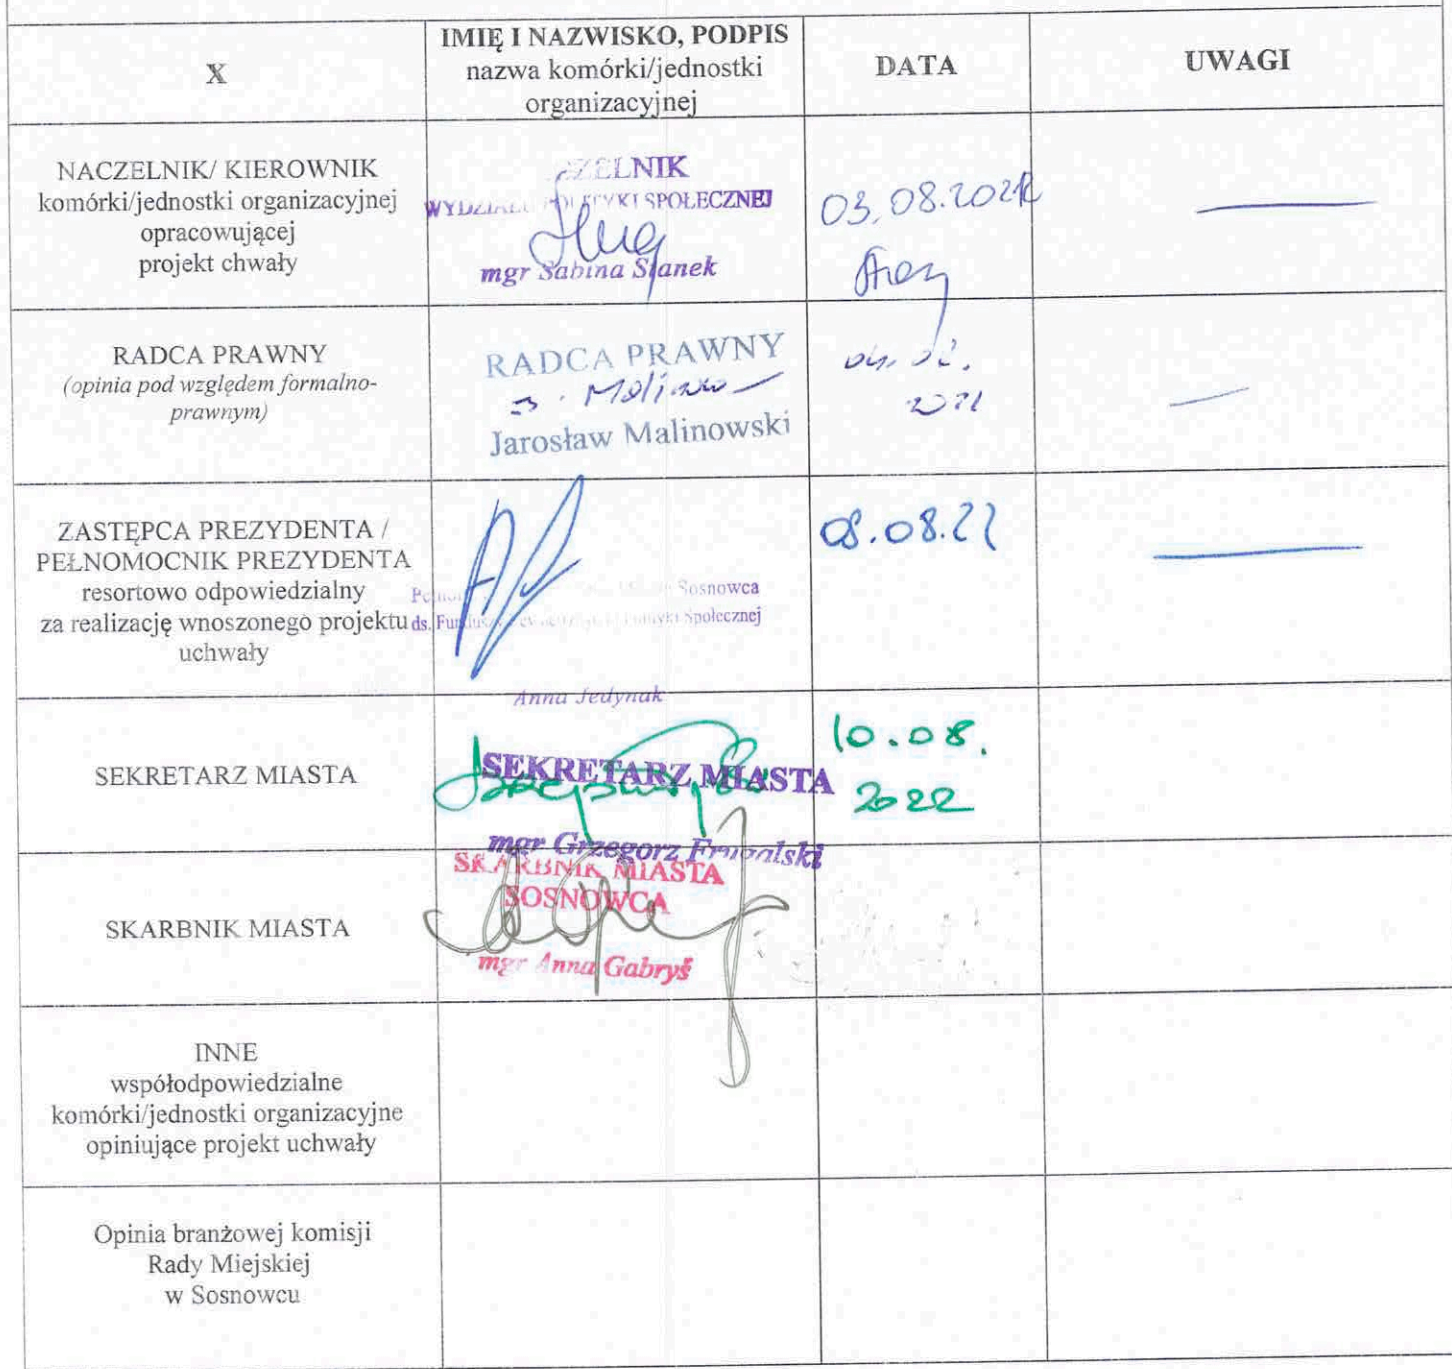 X
IMIĘ I NAZWISKO, PODPIS
nazwa komórki/jednostki
organizacyjnej
DATA
UWAGI
NACZELNIK/ KIEROWNIK
komórki/jednostki organizacyjnej
opracowującej
projekt chwały
ZELNIK
POLITYKI SPOŁECZNEJ
mgr Sabina Stanek
03.08.2022
RADCA PRAWNY
(opinia pod względem formalno-
prawnym)
RADCA PRAWNY
Jarosław Malinowski
ZASTĘPCA PREZYDENTA /
PEŁNOMOCNIK PREZYDENTA
resortowo odpowiedzialny
za realizację wnoszonego projektu
uchwały
Sosnowca
ds. Społecznej
Anna Jedynak
08.08.22
SEKRETARZ MIASTA
SEKRETARZ MIASTA
mgr Grzegorz
10.08.
2022
SKARBNIK MIASTA
SKARBNIK MIASTA
SOSNOWCA
mgr Anna Gabryś
INNE
współodpowiedzialne
komórki/jednostki organizacyjne
opiniujące projekt uchwały
Opinia branżowej komisji
Rady Miejskiej
w Sosnowcu